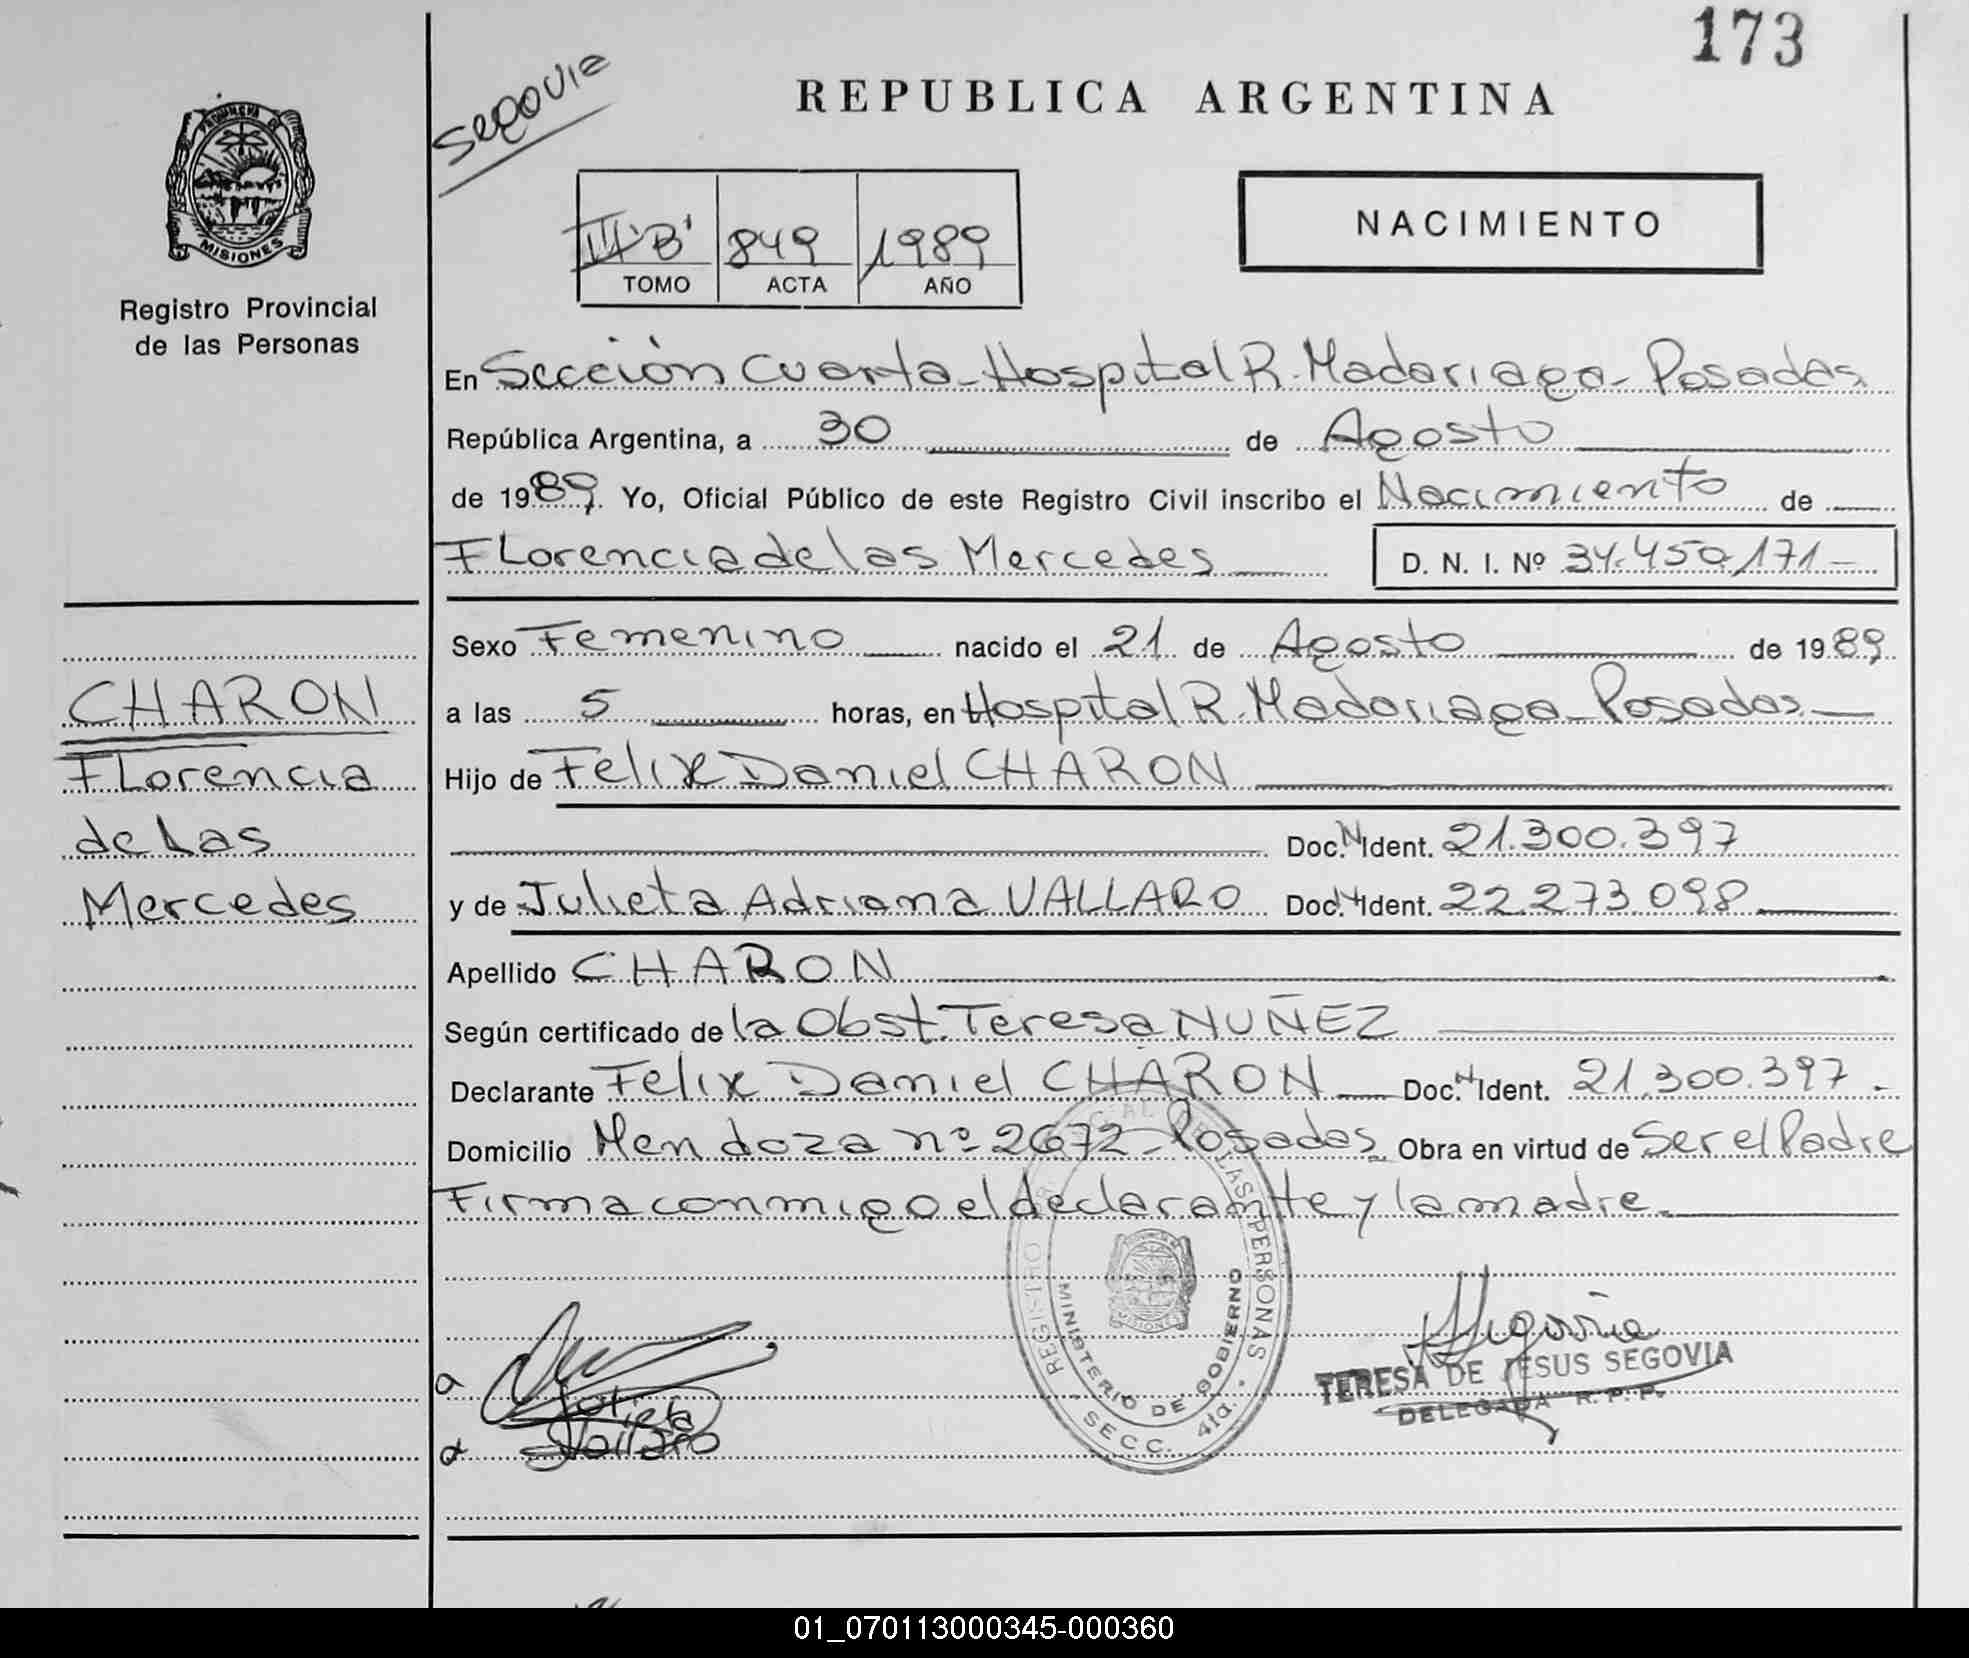 173
Segovia
REPUBLICA ARGENTINA
PROVINCIA DE
MISIONES
Registro Provincial
de las Personas
III "B" 849 1989
TOMO ACTA AÑO
NACIMIENTO
En Sección Cuarta - Hospital R. Madariaga - Posadas
República Argentina, a 30 de Agosto
de 1989. Yo, Oficial Público de este Registro Civil inscribo el Nacimiento de
Florencia de las Mercedes D. N. I. Nº 34.450.171 -
Sexo Femenino nacido el 21 de Agosto de 1989
a las 5 horas, en Hospital R. Madariaga - Posadas
CHARON
Florencia
de Las
Mercedes
Hijo de Felix Daniel CHARON
Doc. N. Ident. 21.300.397
y de Julieta Adriana VALLARO Doc. N. Ident. 22.273.098
Apellido CHARON
Según certificado de la Obst. Teresa NUÑEZ
Declarante Felix Daniel CHARON Doc. N. Ident. 21.300.397.
Domicilio Mendoza nº 2672 - Posadas. Obra en virtud de Ser el Padre
Firma conmigo el declarante y la madre.
REGISTRO DE LAS PERSONAS
MINISTERIO DE GOBIERNO
MISIONES
SECC. 4ta.
a
Julieta
a Vallaro
Segovia
TERESA DE JESUS SEGOVIA
DELEGADA R. P. P.
01_070113000345-000360